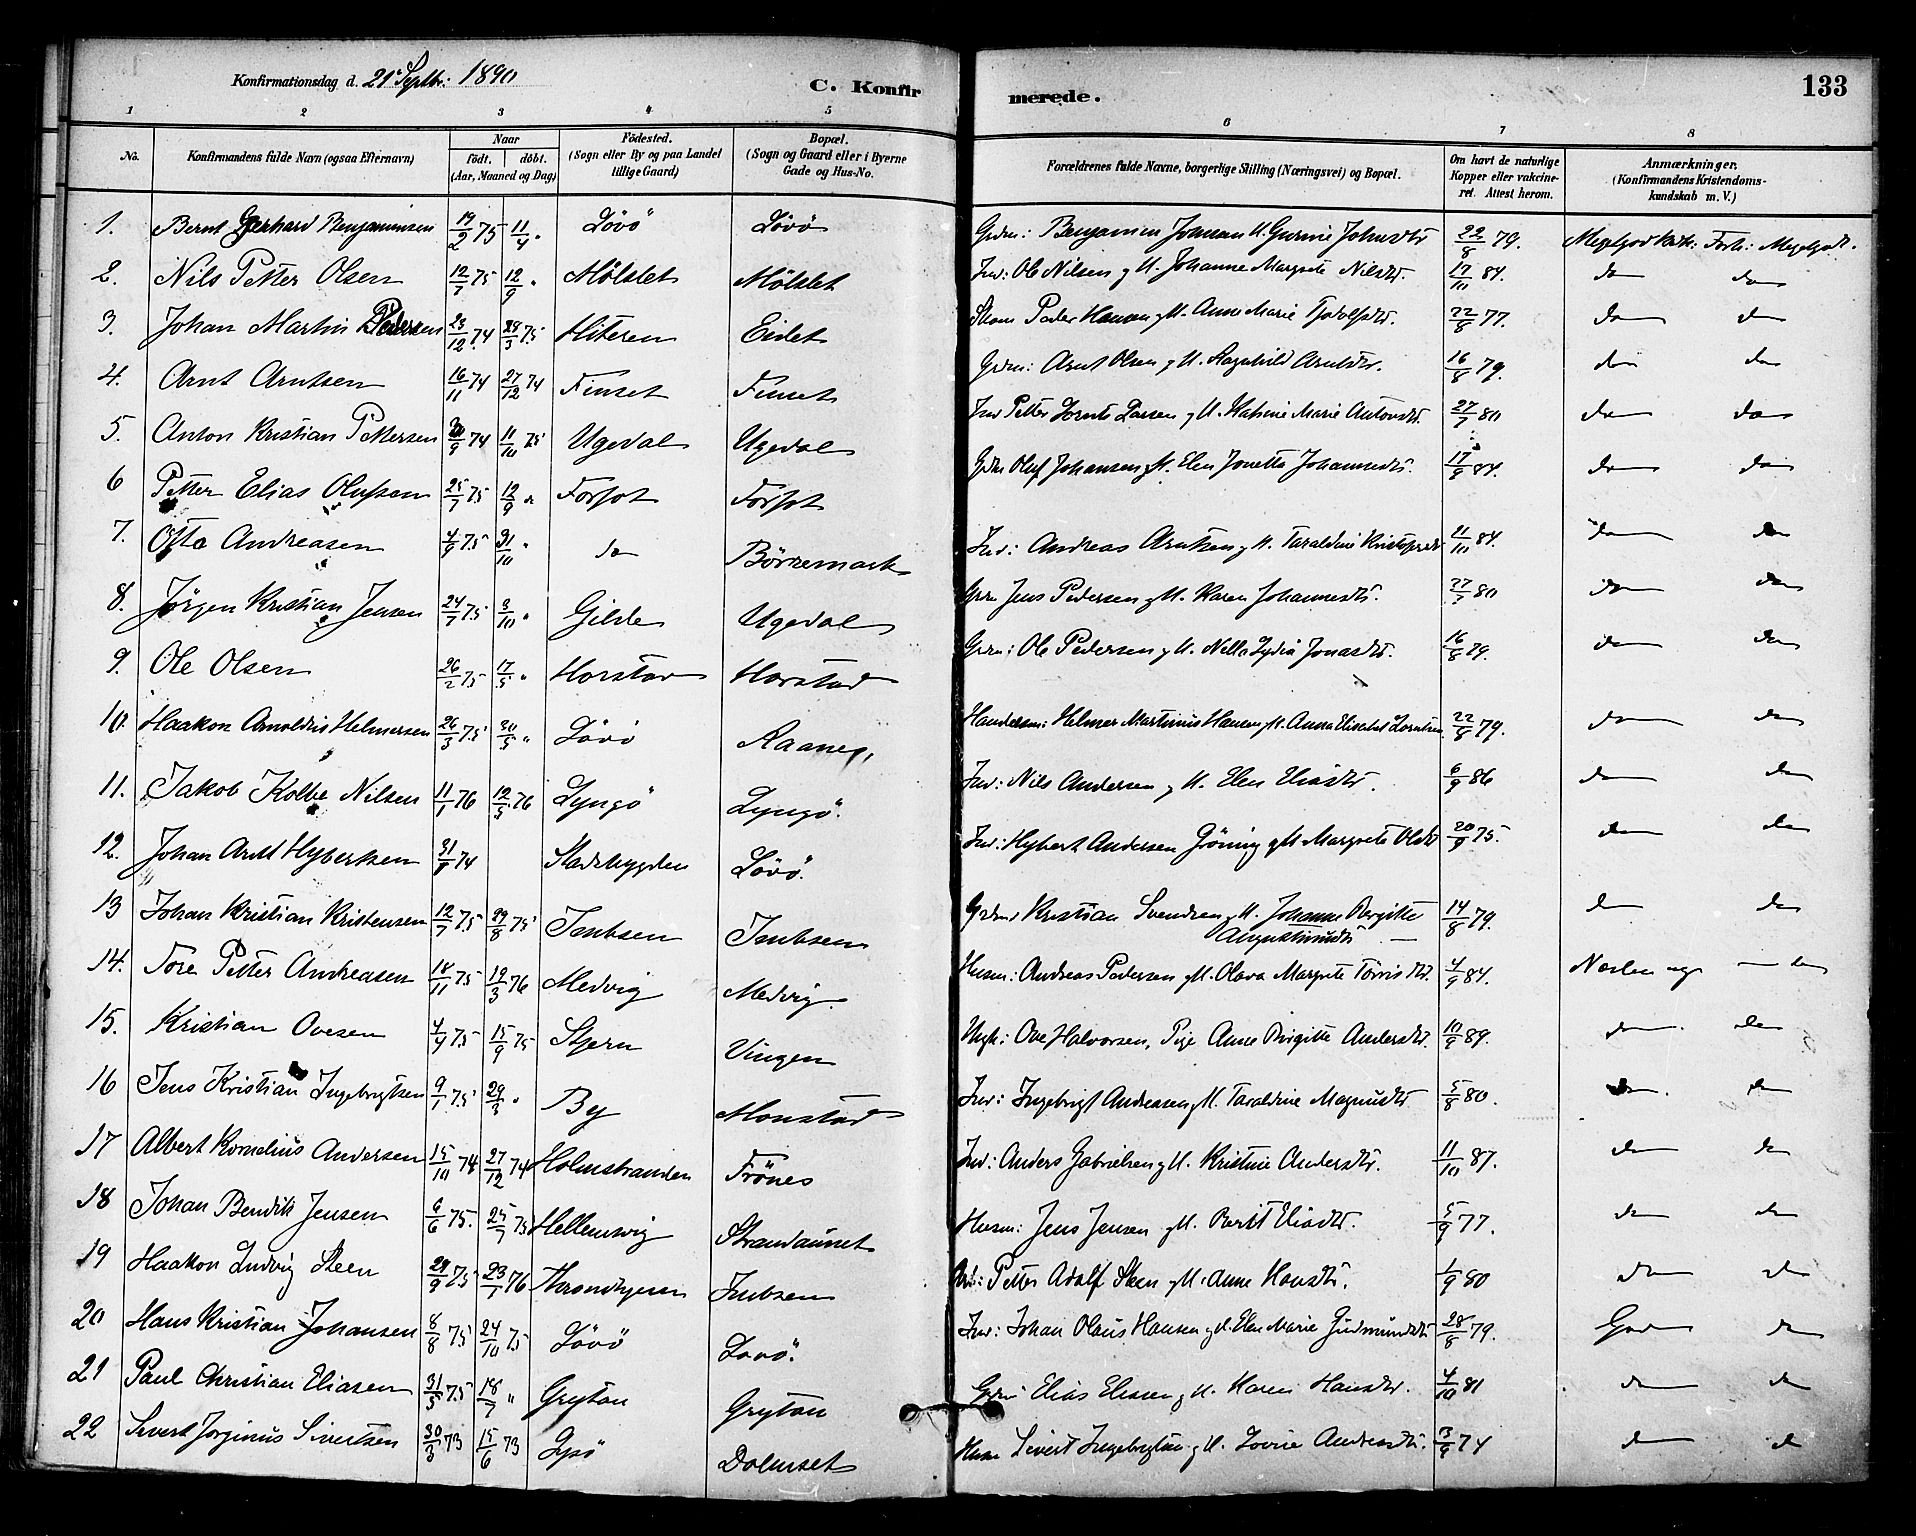 Konfirmationsdag d. 21de Septbr. 1890
C. Konfirmerede.
133
1 2 3 4 5 6 7 8
No.
Konfirmandens fulde Navn (ogsaa Efternavn)
Naar
födt. döbt.
(Aar, Maaned og Dag)
Födested.
(Sogn eller By og paa Landet tillige Gaard)
Bopæl.
(Sogn og Gaard eller i Byerne Gade og Hus-No.
Forældrenes fulde Navne, borgerlige Stilling (Næringsvei) og Bopæl.
Om havt de naturlige Kopper eller vakcineret. Attest herom.
Anmærkninger,
(Konfirmandens Kristendomskundskab m. V.)
1. Bernt Gerhard Benjaminsen 19/2 75 11/4 " Lövö Lövö Grdm: Benjamin Johnsen H. Gurine Johnsdtr 22/8 79. Megetgod Forh: Megetgodt.
2. Nils Petter Olsen 12/7 75 12/9 " Mölslet Mölslet Ind: Ole Nilsen g H. Johanne Margrete Nilsdtr. 17/10 84. do do
3. Johan Martin Pedersen 23/12 74 28/3 75 Hiteren Eidet Skom Peder Hansen g H. Anne Marie 22/8 77. do do
4. Arnt Arntsen 16/11 74 27/12 74 Finset Finset Grdm: Arnt Olsen g H. Ragnhild Arntsdtr. 16/8 79. do do
5. Anton Kristian Pettersen 9 74 11/10 75 Ugedal Ugedal Ind Petter Lornts Larsen g H. Katrine Marie Antonsdtr. 27/7 80 do do
6 Petter Elias Olufsen 25/7 75 12/9 " Forfot Forfot Grdm Oluf Johansen g H. Elen Jonetta Johannesdtr. 17/9 84. do do
7. Otto Andreasen 4/9 75 31/10 " do Börremark Ind: Andreas Arntsen g H. Taraldine Kristofersdtr 21/10 84. do do
8. Jörgen Kristian Jensen 24/7 75 3/10 " Gilde Ugedal Grdm Jens Pedersen g H. Karen Johannesdtr. 27/7 80 do do
9. Ole Olsen 26/2 75 17/5 " Horstad Horstad Grdm: Ole Pedersen g H. Nella Lydia Jonasdtr. 16/8 79. do do
10. Haakon Arnoldus Helmersen 26/3 75 30/5 " Lövö Raanes, Handelsm: Helmer Martinus Hansen g H. Anna Elisabet Lorntsen 22/8 79. do do
11. Jakob Kolbe Nilsen 11/1 76 12/3 76 Lyngö Lyngö. Ind: Nils Andersen g H. Elen Eliasdtr. 6/9 86 do do
12. Johan Arnt Hybertsen 31/8 74 Stadsbygden Lövö. Ind: Hybert Andersen Gröning g H Margrete Olsdtr 20/9 75. do do
13 Johan Kristian Kristensen 12/7 75 29/8 75 Jenbsen Jenbsen Grdm: Kristian Svendsen g H. Johanne Birgitte Augustinusdtr 14/8 79. do do
14. Tore Petter Andreasen 18/11 75 19/3 76 Medvig Medvig. Husm: Andreas Pedersen g H. Olava Margrete Torrisdtr. 4/9 84. do
15. Kristian Ovesen 4/4 75 15/9 75 Stjern Vingen Ungk: Ove Halvorsen, Pige Anne Birgitte Andersdtr. 10/8 89. do do
16 Jens Kristian Ingebrigtsen 9/1 75 29/3 " By Monstad Ind: Ingebrigt Andreasen g H. Taraldine Magnusdtr 5/8 80. do do
17 Albert Kornelius Andersen 15/10 74 27/12 74 Holmstranden Frönes Ind: Anders Gabrielsen g H. Kristine Andersdtr. 11/10 87. do do
18 Johan Bendik Jensen 6/6 75. 25/7 75 Hellemsvig Strandaunet Husm: Jens Jensen g H. Berit Eliasdtr. 5/9 77. do do
19 Haakon Ludvig Steen 29/9 75 23/1 76 Throndhjem Jenbsen Petter Adolf Steen g H. Anne Hansdtr. 1/9 80 do do
20 Hans Kristian Johansen 8/8 75 24/10 75 Lövö Lövö. Ind: Johan Olaus Hansen g H. Elen Marie Gudmundsdtr 28/8 79. God do
21 Paul Christian Eliasen 31/5 75 18/7 " Grytan Grytan Grdm Elias Elissen g H. Karen Hansdtr. 4/10 81 do do
22 Sivert Jorginus Sivertsen 30/3 73 15/6 73 Lysö Dolmset Husm Sivert Ingebrigtsen g H. Lovise Andreasdtr. 13/9 74 do do